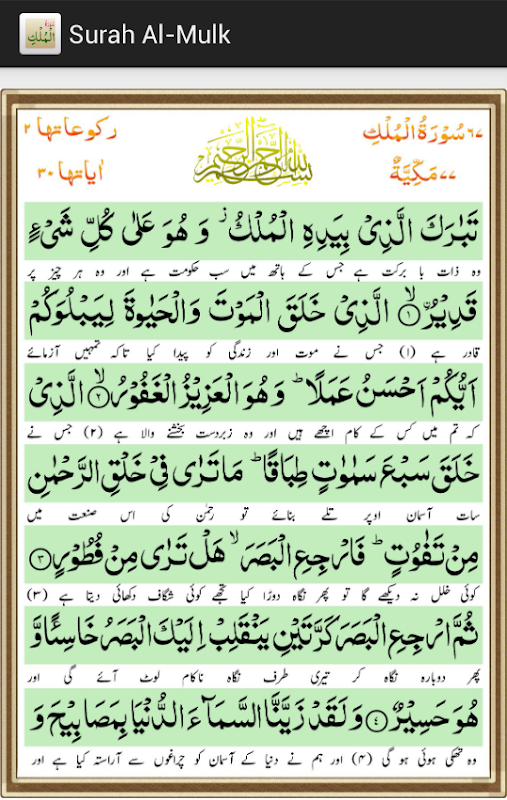 Surah Al-Mulk
٦٧ سُوْرَةُ الْمُلْكِ
٧٧ مَكِّيَّةٌ
بِسْمِ اللهِ الرَّحْمٰنِ الرَّحِيْمِ
رکوعاتها ٢
اٰياتها ٣٠
تَبٰرَكَ الَّذِىْ بِيَدِهِ الْمُلْكُ ز وَ هُوَ عَلٰى كُلِّ شَىْءٍ
وہ ذات با برکت ہے جس کے ہاتھ میں سب حکومت ہے اور وہ ہر چیز پر
قَدِيْرُ ۙ﴿١﴾ الَّذِىْ خَلَقَ الْمَوْتَ وَالْحَيٰوةَ لِيَبْلُوَكُمْ
قادر ہے (۱) جس نے موت اور زندگی کو پیدا کیا تاکہ تمہیں آزمائے
اَيُّكُمْ اَحْسَنُ عَمَلًا ؕ وَهُوَ الْعَزِيْزُ الْغَفُوْرُ ۙ﴿٢﴾ الَّذِىْ
کہ تم میں کس کے کام اچھے ہیں اور وہ زبردست بخشنے والا ہے (۲) جس نے
خَلَقَ سَبْعَ سَمٰوٰتٍ طِبَاقًا ؕ مَا تَرٰى فِىْ خَلْقِ الرَّحْمٰنِ
سات آسمان اوپر تلے بنائے تو رحمٰن کی اس صنعت میں
مِنْ تَفٰوُتٍ ؕ فَارْجِعِ الْبَصَرَ ۙ هَلْ تَرٰى مِنْ فُطُوْرٍ ﴿٣﴾
کوئی خلل نہ دیکھے گا تو پھر نگاہ دوڑا کیا تجھے کوئی شگاف دکھائی دیتا ہے (۳)
ثُمَّ ارْجِعِ الْبَصَرَ كَرَّتَيْنِ يَنْقَلِبْ اِلَيْكَ الْبَصَرُ خَاسِئًا وَّ
پھر دوبارہ نگاہ کر تیری طرف نگاہ ناکام لوٹ آئے گی اور
هُوَ حَسِيْرٌ ﴿٤﴾ وَلَقَدْ زَيَّنَّا السَّمَآءَ الدُّنْيَا بِمَصَابِيْحَ وَ
وہ تھکی ہوئی ہو گی (۴) اور ہم نے دنیا کے آسمان کو چراغوں سے آراستہ کیا ہے اور